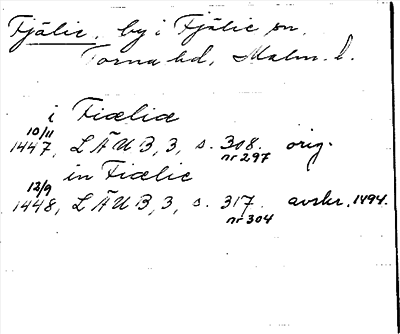 Fjälie, by i Fjälie sn.
Torna hd, Malm. l.
i Fiæliæ
10/11
1447, LÄUB, 3, s. 308. orig.
nr 297
in Fiælie
12/9
1448, LÄUB, 3, s. 317. avskr. 1494.
nr 304